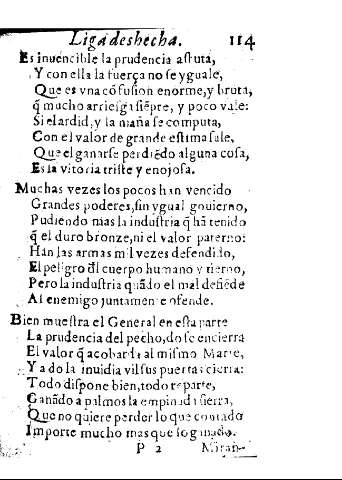 Liga deshecha. 114
Es inuencible la prudencia astuta,
Y con ella la fuerça no se yguale,
Que es vna cõfusion enorme, y bruta,
q̃ mucho arriesga siẽpre, y poco vale:
Si el ardid, y la maña se computa,
Con el valor de grande estima sale,
Que el ganarse perdiẽdo alguna cosa,
Es la vitoria triste y enojosa.
Muchas vezes los pocos han vencido
Grandes poderes, sin ygual gouierno,
Pudiendo mas la industria q̃ hã tenido
q̃ el duro bronze, ni el valor paterno:
Han las armas mil vezes defendido,
El peligro d̃l cuerpo humano y tierno,
Pero la industria quãdo el mal defiẽde
Al enemigo juntamente ofende.
Bien muestra el General en esta parte
La prudencia del pecho, do se encierra
El valor q̃ acobarda al mismo Marte,
Y a do la inuidia vil sus puertas cierra:
Todo dispone bien, todo reparte,
Ganãdo a palmos la empinada sierra,
Que no quiere perder lo que contado
Importe mucho mas que lo ganado.
P 2 Miran-